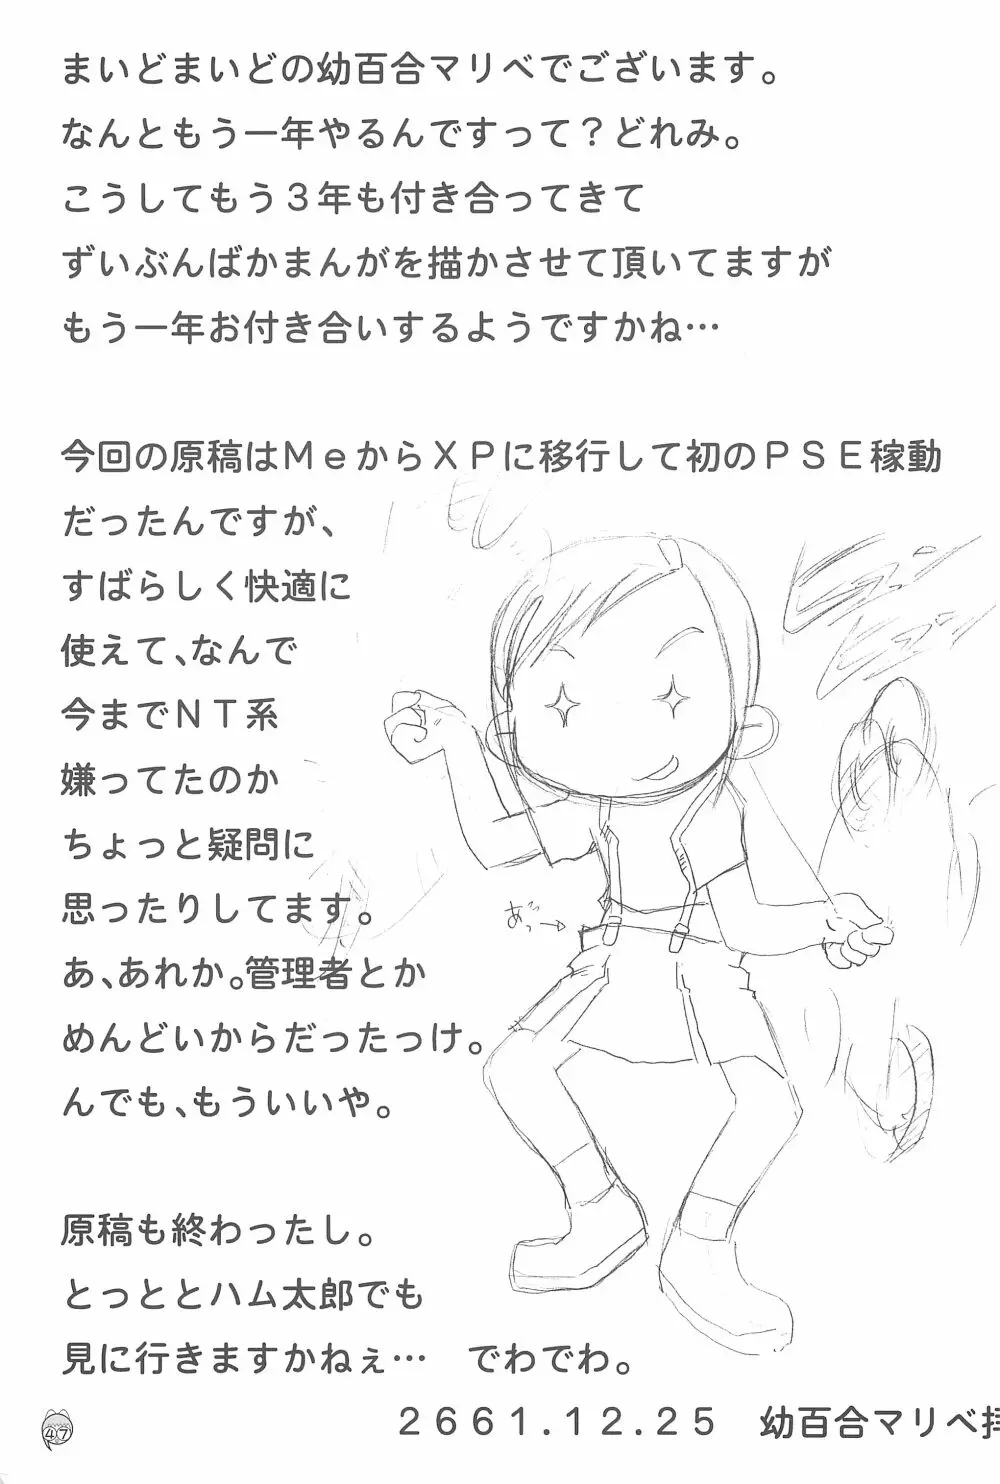 まいどまいどの幼百合マリベでございます。
なんともう一年やるんですって？どれみ。
こうしてもう３年も付き合ってきて
ずいぶんばかまんがを描かさせて頂いてますが
もう一年お付き合いするようですかね…
今回の原稿はＭｅからＸＰに移行して初のＰＳＥ稼動
だったんですが、
すばらしく快適に
使えて、なんで
今までＮＴ系
嫌ってたのか
ちょっと疑問に
思ったりしてます。
あ、あれか。管理者とか
めんどいからだったっけ。
んでも、もういいや。
原稿も終わったし。
とっととハム太郎でも
見に行きますかねぇ… でわでわ。
２６６１.１２.２５ 幼百合マリベ拝
47